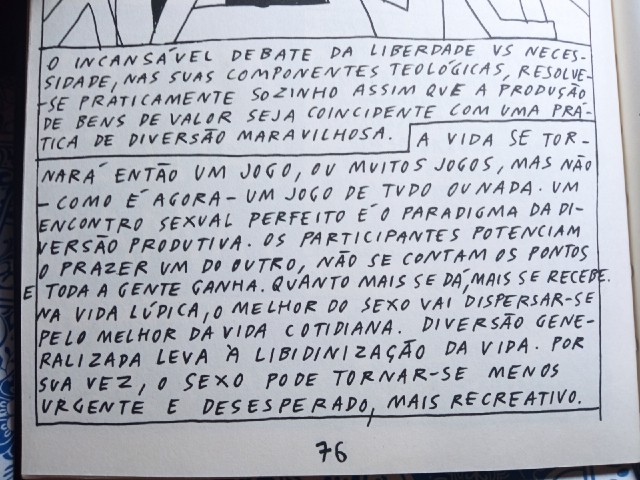 O INCANSÁVEL DEBATE DA LIBERDADE VS NECES-
SIDADE, NAS SUAS COMPONENTES TEOLÓGICAS, RESOLVE-
-SE PRATICAMENTE SOZINHO ASSIM QUE A PRODUSÃO
DE BENS DE VALOR SEJA COINCIDENTE COM UMA PRÁ-
TICA DE DIVERSÃO MARAVILHOSA. A VIDA SE TOR-
NARÁ ENTÃO UM JOGO, OU MUITOS JOGOS, MAS NÃO
- COMO É AGORA - UM JOGO DE TUDO OU NADA. UM
ENCONTRO SEXUAL PERFEITO É O PARADIGMA DA DI-
VERSÃO PRODUTIVA. OS PARTICIPANTES POTENCIAM
O PRAZER UM DO OUTRO, NÃO SE CONTAM OS PONTOS
E TODA A GENTE GANHA. QUANTO MAIS SE DÁ, MAIS SE RECEBE.
NA VIDA LÚDICA, O MELHOR DO SEXO VAI DISPERSAR-SE
PELO MELHOR DA VIDA COTIDIANA. DIVERSÃO GENE-
RALIZADA LEVA À LIBIDINIZAÇÃO DA VIDA. POR
SUA VEZ, O SEXO PODE TORNAR-SE MENOS
URGENTE E DESESPERADO, MAIS RECREATIVO.
76